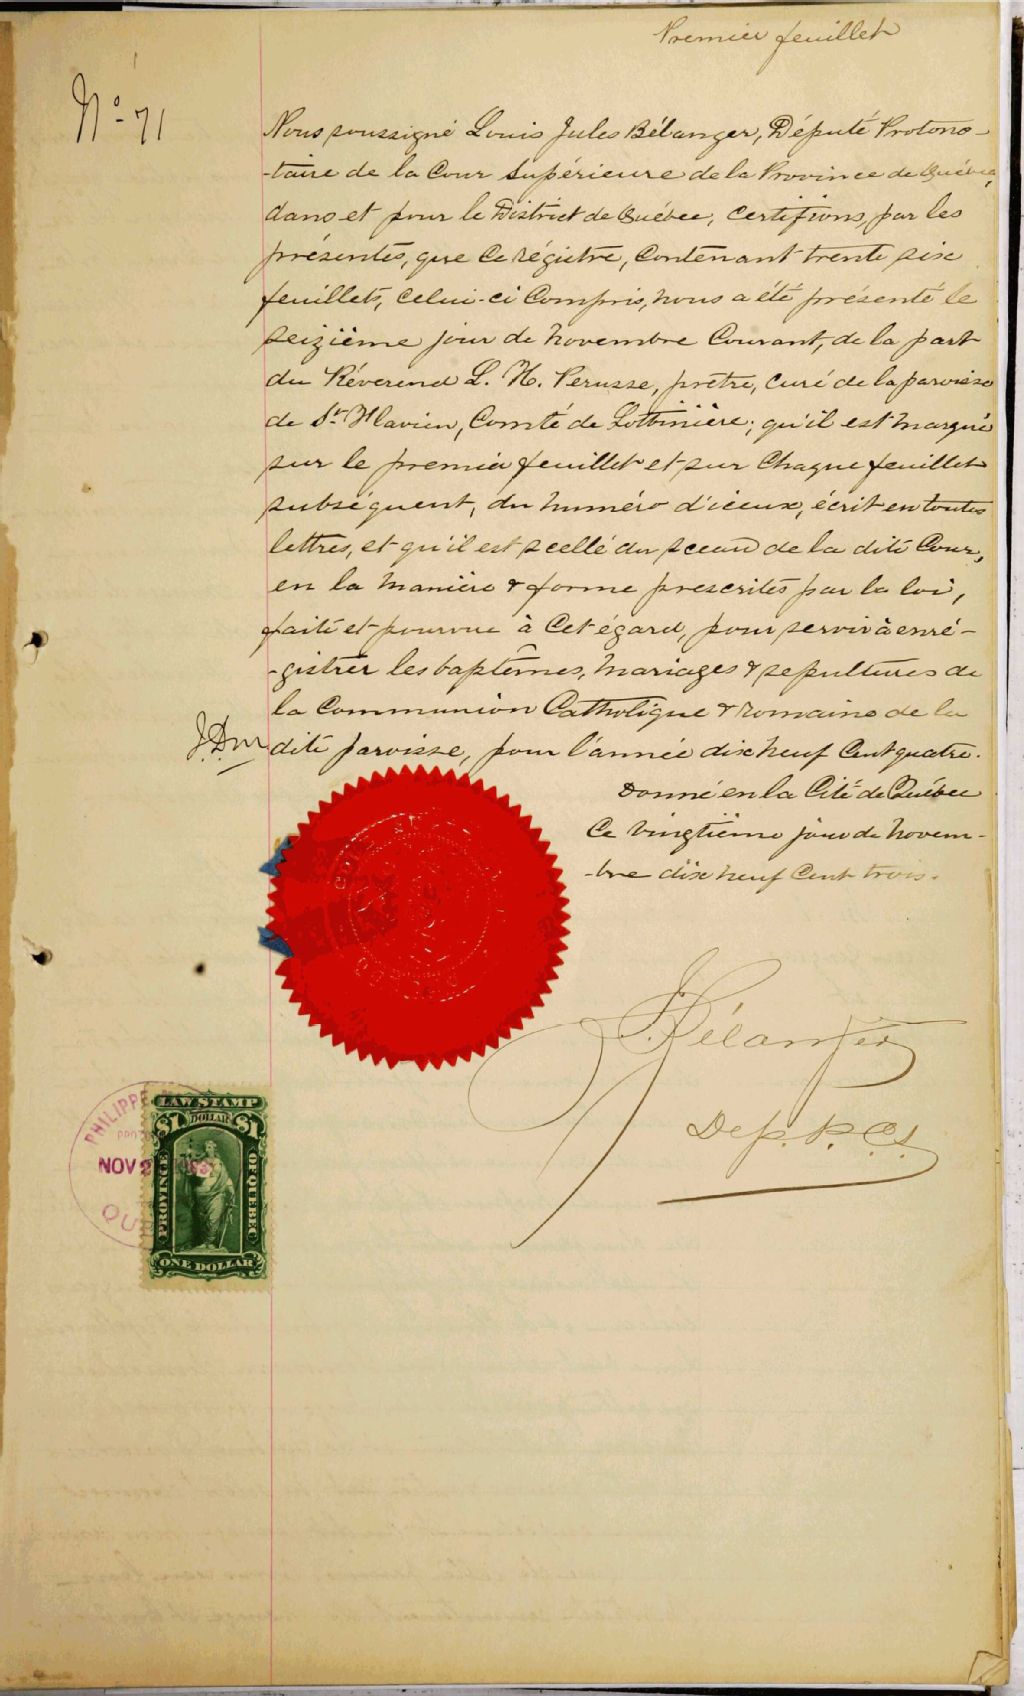 Premier feuillet
No. 71
Nous soussigné Louis Jules Bélanger, Député Protono-
-taire de la Cour Supérieure de la Province de Québec,
dans et pour le District de Québec, certifions, par les
présentes, que ce régistre, contenant trente six
feuillets, celui-ci compris, nous a été présenté le
seizième jour de novembre courant, de la part
du Révérend L. H. Perusse, prêtre, curé de la paroisse
de St. Flavien, Comté de Lotbinière; qu'il est marqué
sur le premier feuillet et sur chaque feuillet
subséquent, du numéro d'iceux, écrit en toutes
lettres, et qu'il est scellé du sceau de la dite Cour,
en la manière & forme prescrites par la loi,
faite et pourvue à cet égard, pour servir à enré-
-gistrer les baptêmes, mariages & sépultures de
la Communion Catholique & romaine de la
dite paroisse, pour l'année dix neuf cent quatre.
Donné en la Cité de Québec
ce vingtième jour de novem-
-bre dix neuf cent trois.
Bélanger
Dep. P.C.S.
PHILIPPE
LAW STAMP
$1 DOLLAR $1
NOV 2
PROVINCE OF QUEBEC
QU
ONE DOLLAR